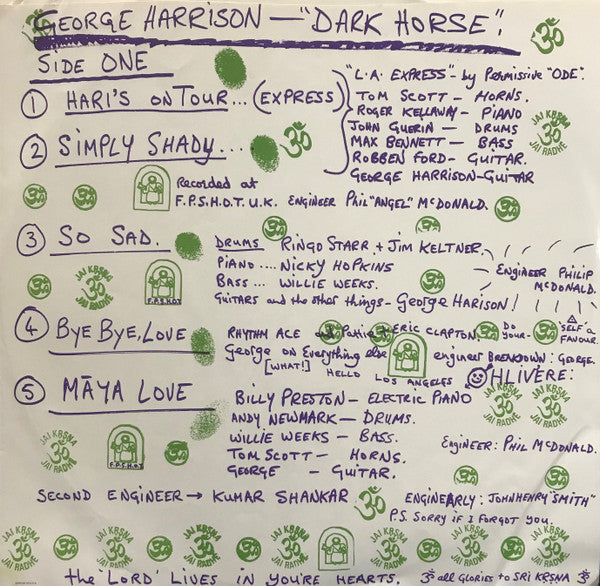 GEORGE HARRISON — "DARK HORSE".
SIDE ONE
"L.A. EXPRESS" - by Permissive "ODE".
① HARI'S ON TOUR... (EXPRESS)
TOM SCOTT — HORNS.
ROGER KELLAWAY — PIANO
JOHN GUERIN — DRUMS
② SIMPLY SHADY...
MAX BENNETT — BASS
ROBBEN FORD — GUITAR.
GEORGE HARRISON — GUITAR
JAI KRSNA
ॐ
JAI RADHE
Recorded at
F.P.S.H.O.T. U.K. ENGINEER Phil "ANGEL" McDONALD.
③ SO SAD.
DRUMS RINGO STARR + JIM KELTNER.
PIANO .... NICKY HOPKINS
BASS ... WILLIE WEEKS.
GUITARS and the other things - George HARISON!
ENGINEER PHILIP
McDONALD.
JAI KRSNA
ॐ
JAI RADHE
F.P.S.H.O.T
④ BYE BYE, LOVE
RHYTHM ACE and Pattie + ERIC CLAPTON.
DO YOUR- SELF A FAVOUR.
George ON Everything else engineer BRENDOWN: GEORGE.
[WHAT!] HELLO LOS ANGELES OHLIVERE:
⑤ MĀYA LOVE
BILLY PRESTON — ELECTRIC PIANO
ANDY NEWMARK — DRUMS.
WILLIE WEEKS — BASS.
TOM SCOTT — HORNS.
GEORGE — GUITAR.
JAI KRSNA
ॐ
JAI RADHE
JAI KRSNA
ॐ
JAI RADHE
ENGINEER: PHIL McDONALD.
JAI KRSNA
ॐ
JAI RADHE
F.P.S.H.O.T
SECOND ENGINEER → KUMAR SHANKAR
ॐ
ENGINEARLY: JOHNHENRY "SMITH"
P.S. SORRY IF I FORGOT YOU.
JAI KRSNA
ॐ
JAI RADHE
JAI KRSNA
ॐ
JAI RADHE
JAI KRSNA
ॐ
JAI RADHE
JAI KRSNA
ॐ
JAI RADHE
the 'LORD' LIVES IN YOU'RE HEARTS.
ॐ all GLORIES to SRI KRSNA ॐ